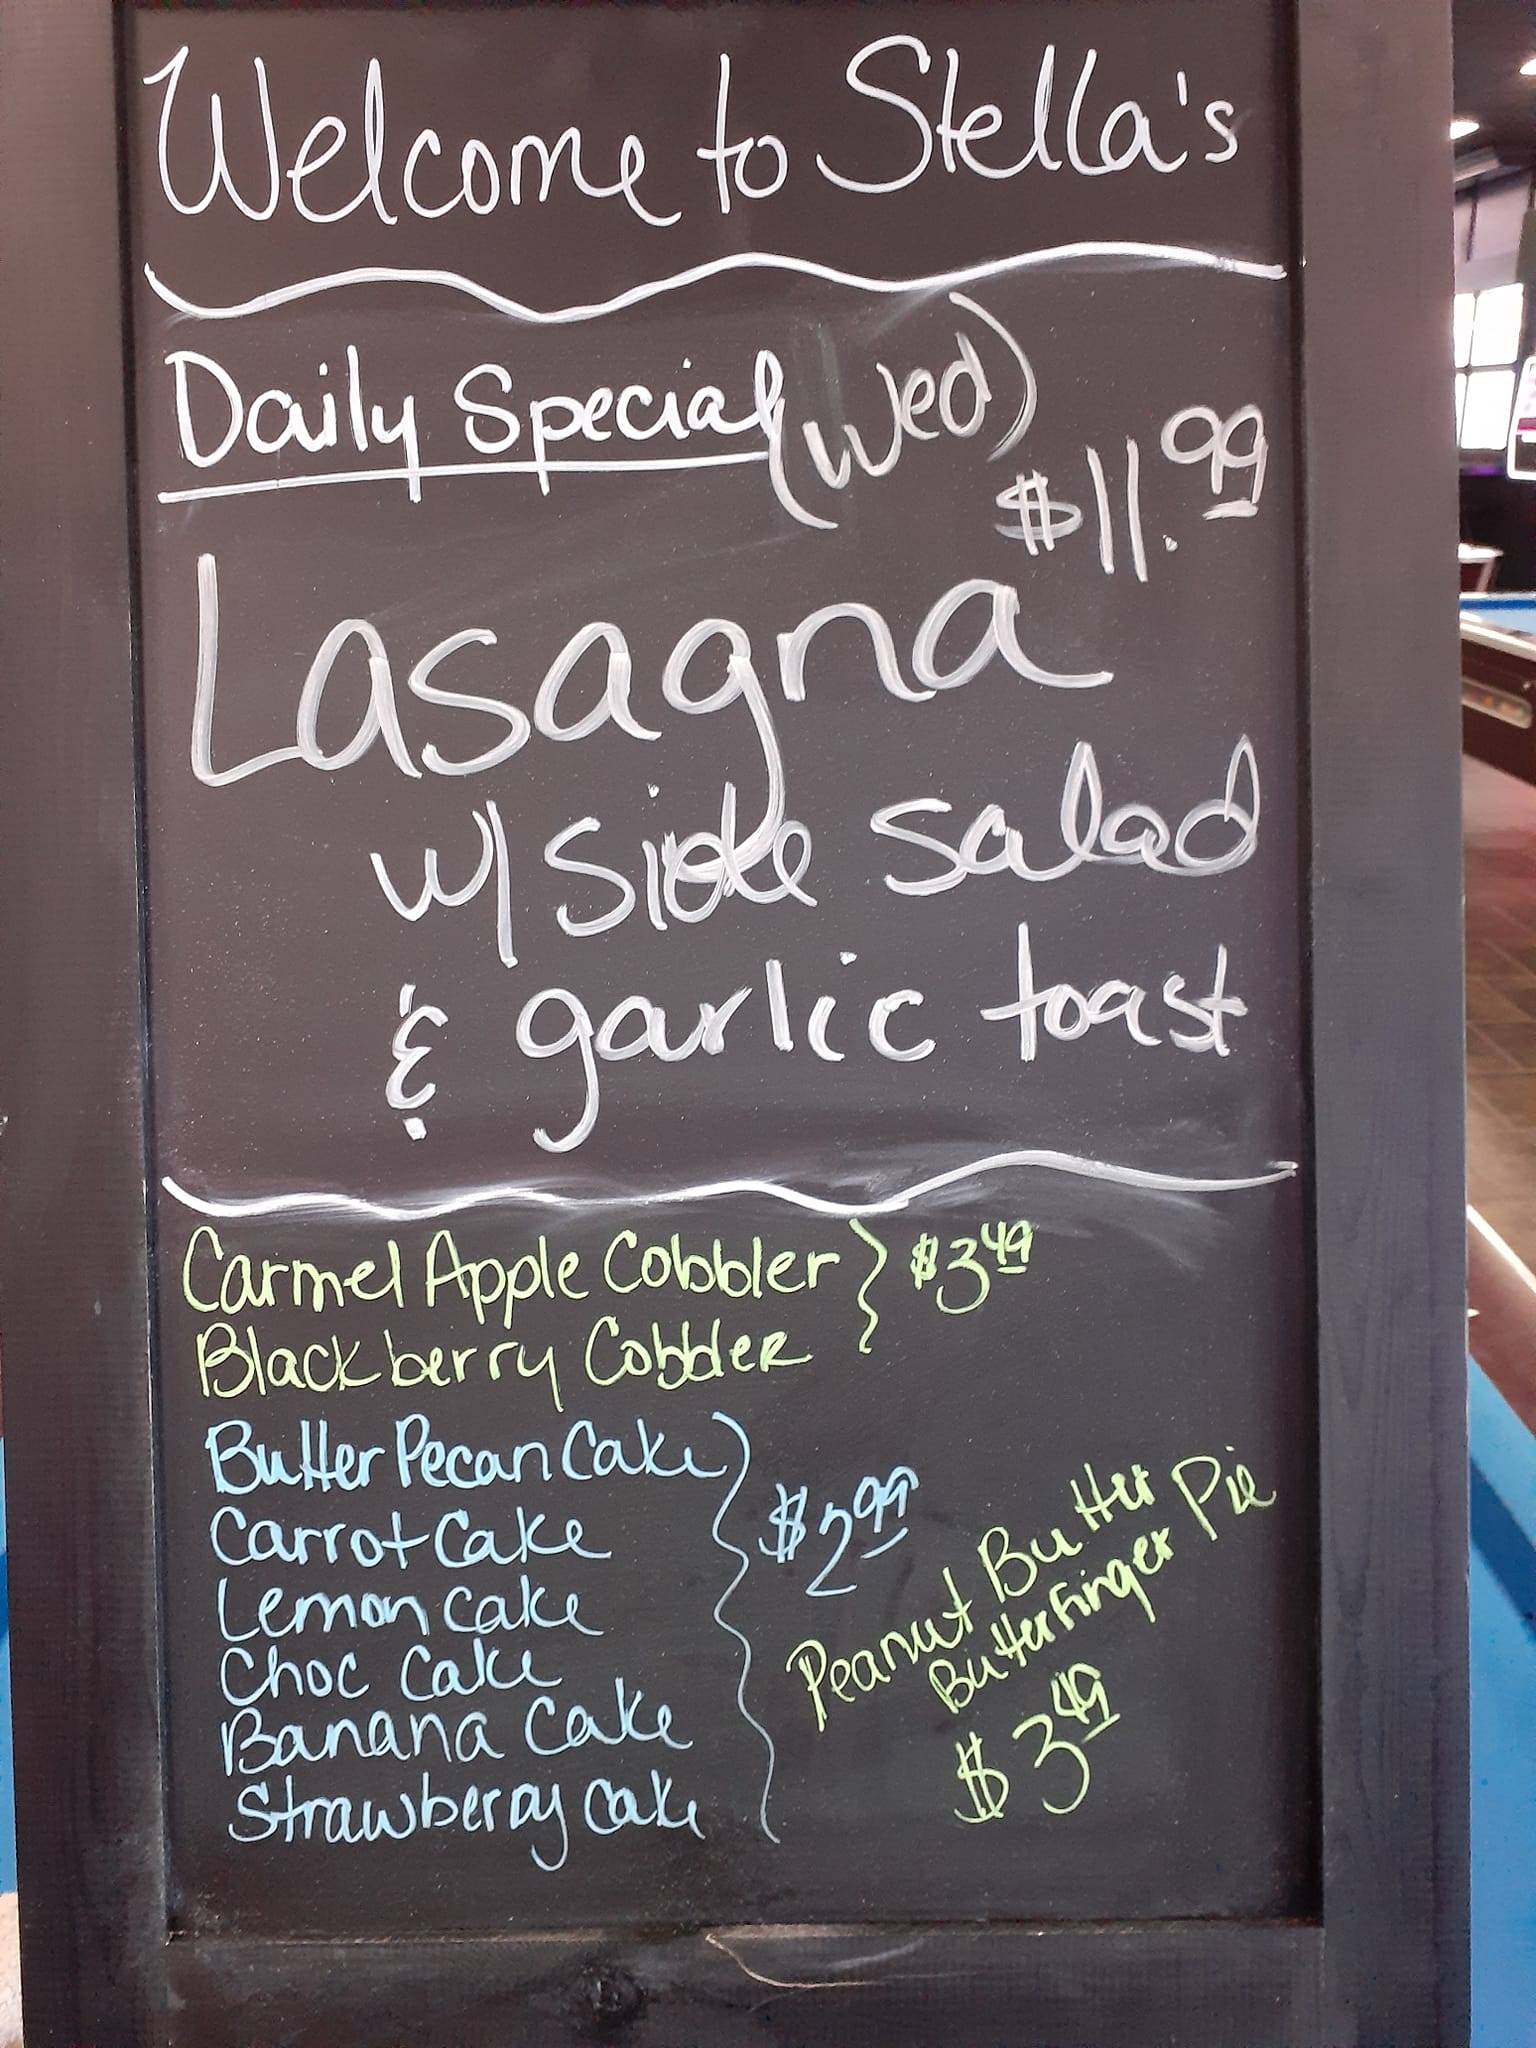 Welcome to Stella's
Daily Special (Wed)
$11.99
Lasagna
w/ side salad
& garlic toast
Carmel Apple Cobbler } $3.49
Blackberry Cobbler
Butter Pecan Cake
Carrot Cake
$2.99
Lemon Cake
Choc Cake
Banana Cake
Strawberry Cake
Peanut Butter
Butterfinger Pie
$3.49